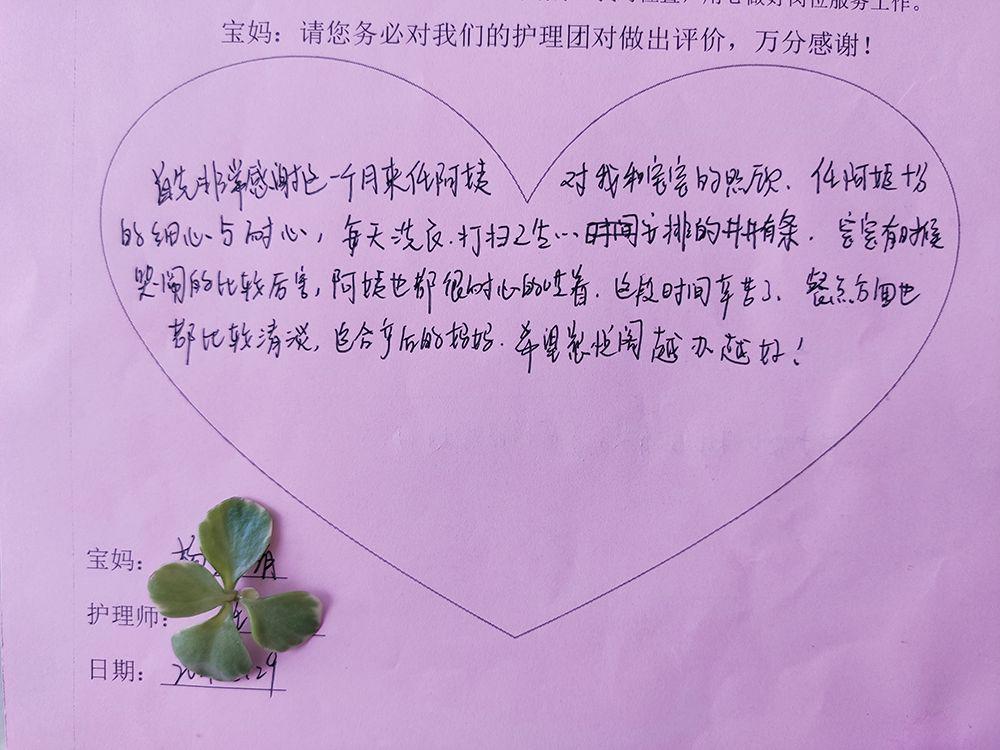 用心做好岗位服务工作。
宝妈：请您务必对我们的护理团对做出评价，万分感谢！
首先非常感谢这一个月来任阿姨 对我和宝宝的照顾、任阿姨十分
的细心与耐心，每天洗衣、打扫卫生…时间安排的井井有条、宝宝有时候
哭闹的比较厉害，阿姨也都很耐心的哄着、这段时间辛苦了、餐点方面也
都比较清淡，适合产后的妈妈、希望 悦阁越办越好！
宝妈：
护理师：
日期： 29